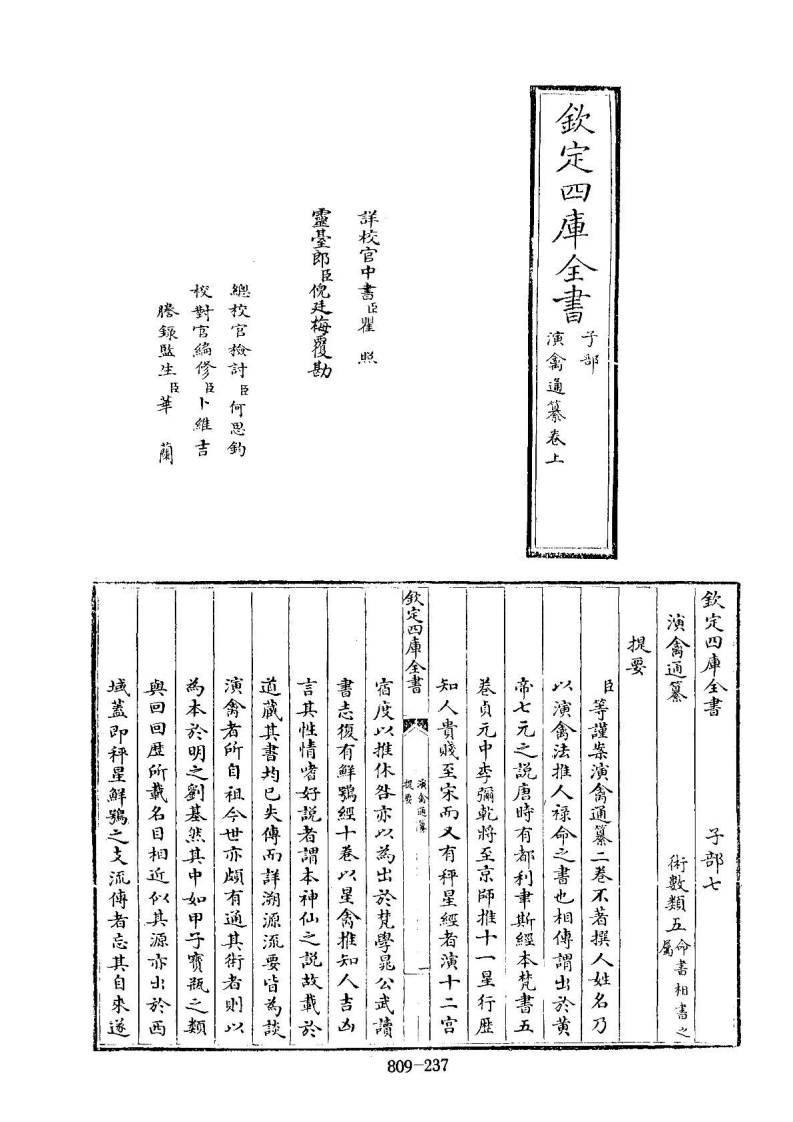 欽定四庫全書
子部
演禽通纂卷上
詳校官中書臣瞿照
靈臺郎臣倪廷梅覆勘
總校官檢討臣何思鈞
校對官編修臣卜維吉
謄錄監生臣華蘭
欽定四庫全書 子部七
演禽通纂 術數類五命書相書之屬
提要
臣等謹案演禽通纂二卷不著撰人姓名乃
以演禽法推人祿命之書也相傳謂出於黃
帝七元之說唐時有都利聿斯經本梵書五
卷貞元中李彌乾將至京師推十一星行歴
知人貴賤至宋而又有秤星經者演十二宮
欽定四庫全書
演禽通纂
提要
宿度以推休咎亦以為出於梵學晁公武讀
書志復有鮮鶚經十卷以星禽推知人吉凶
言其性情嗜好說者謂本神仙之說故載於
道藏其書均已失傳而詳溯源流要皆為談
演禽者所自祖今世亦頗有通其術者則以
為本於明之劉基然其中如甲子寶瓶之類
與回回歴所載名目相近似其源亦出於西
域蓋即秤星鮮鶚之支流傳者忘其自來遂
809-237